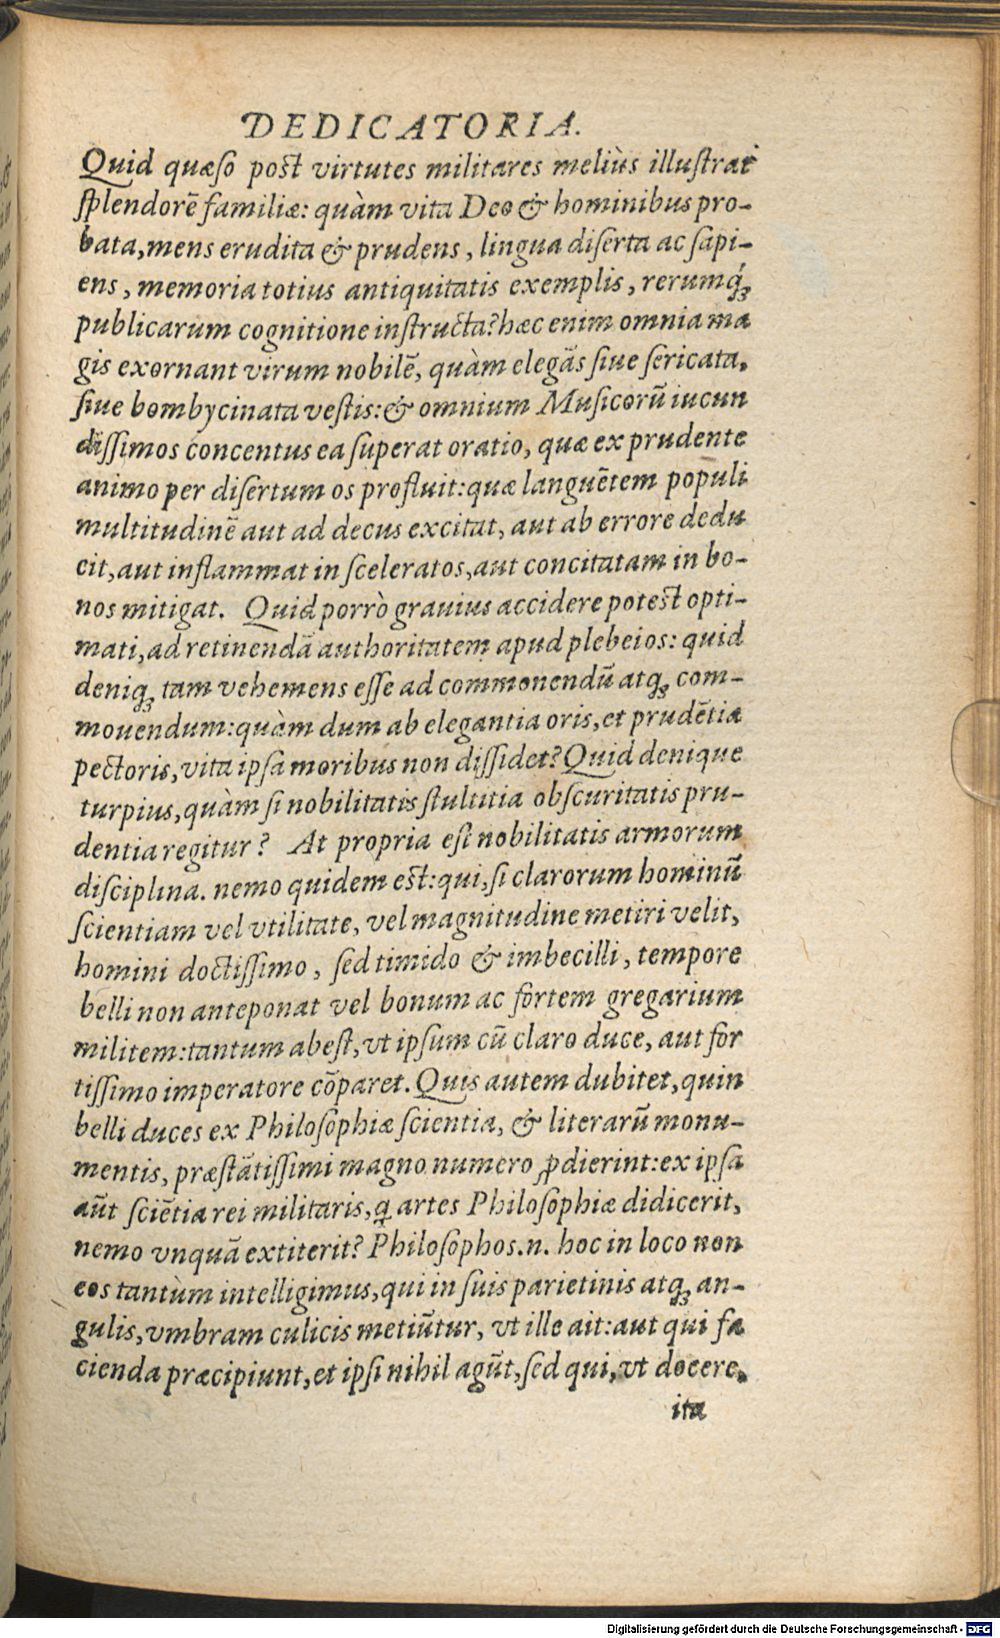 DEDICATORIA.
Quid quæso post virtutes militares meliùs illuſtrat
ſplendorē familiæ: quàm vita Deo & hominibus pro-
bata, mens erudita & prudens, lingua diſerta ac ſapi-
ens, memoria totius antiquitatis exemplis, rerumq́;
publicarum cognitione inſtructa? hæc enim omnia ma
gis exornant virum nobilē, quàm elegās ſiue ſericata,
ſiue bombycinata veſtis: & omnium Muſicorū iucun
diſſimos concentus ea ſuperat oratio, quæ ex prudente
animo per diſertum os profluit: quæ languētem populi
multitudinē aut ad decus excitat, aut ab errore dedu
cit, aut inflammat in ſceleratos, aut concitatam in bo-
nos mitigat. Quid porrò grauius accidere poteſt opti-
mati, ad retinendā authoritatem apud plebeios: quid
deniq; tam vehemens eſſe ad commonendū atq; com-
mouendum: quàm dum ab elegantia oris, et prudētia
pectoris, vita ipſa moribus non diſſidet? Quid denique
turpius, quàm ſi nobilitatis ſtultitia obſcuritatis pru-
dentia regitur? At propria eſt nobilitatis armorum
diſciplina. nemo quidem eſt: qui, ſi clarorum hominū
ſcientiam vel vtilitate, vel magnitudine metiri velit,
homini doctiſſimo, ſed timido & imbecilli, tempore
belli non anteponat vel bonum ac fortem gregarium
militem: tantum abeſt, vt ipſum cū claro duce, aut for
tiſſimo imperatore cōparet. Quis autem dubitet, quin
belli duces ex Philoſophiæ ſcientia, & literarū monu-
mentis, præſtātiſſimi magno numero ꝓdierint: ex ipſa
aūt ſciētia rei militaris, ꝗ artes Philoſophiæ didicerit,
nemo vnquā extiterit? Philoſophos.n. hoc in loco non
eos tantùm intelligimus, qui in ſuis parietinis atq; an-
gulis, vmbram culicis metiūtur, vt ille ait: aut qui fa
cienda præcipiunt, et ipſi nihil agūt, ſed qui, vt docere,
ita
Digitalisierung gefördert durch die Deutsche Forschungsgemeinschaft - DFG